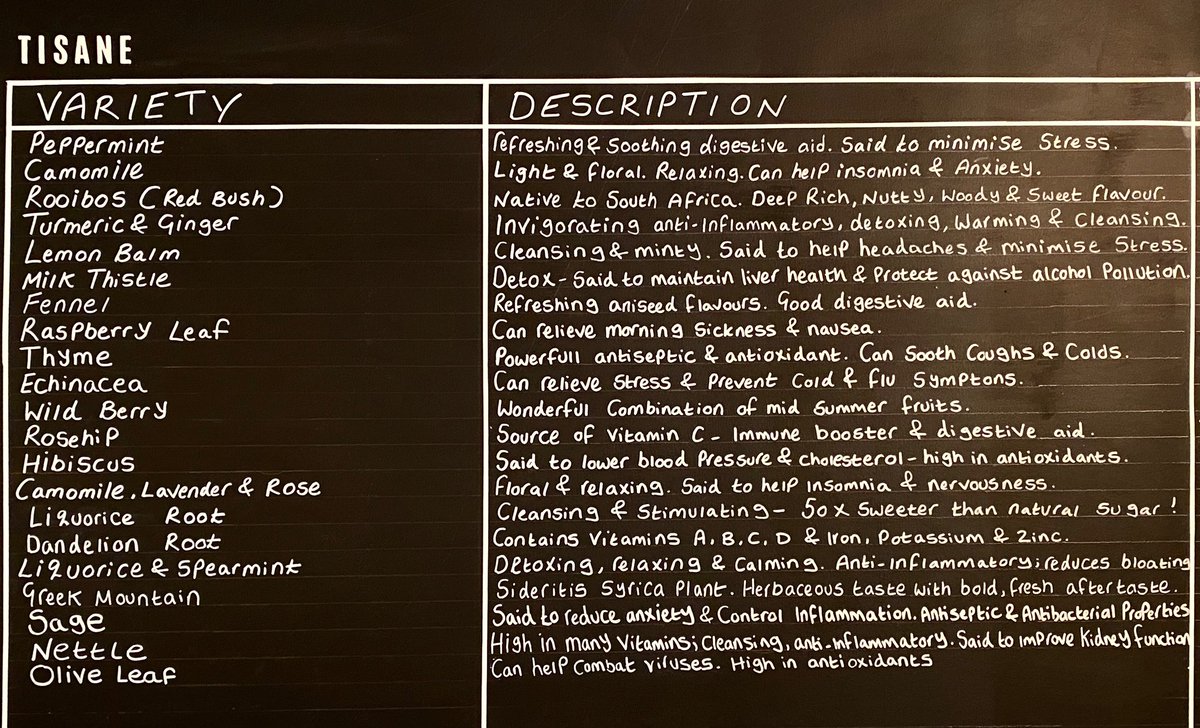 TISANE
VARIETY DESCRIPTION
Peppermint Refreshing & Soothing digestive aid. Said to minimise Stress.
Camomile Light & floral. Relaxing. Can help insomnia & Anxiety.
Rooibos (Red Bush) Native to South Africa. Deep Rich, Nutty, Woody & Sweet flavour.
Turmeric & Ginger Invigorating anti-Inflammatory, detoxing, Warming & Cleansing.
Lemon Balm Cleansing & minty. Said to help headaches & minimise Stress.
Milk Thistle Detox - Said to maintain liver health & Protect against alcohol Pollution.
Fennel Refreshing aniseed flavours. Good digestive aid.
Raspberry Leaf Can relieve morning Sickness & nausea.
Thyme Powerfull antiseptic & antioxidant. Can Sooth Coughs & Colds.
Echinacea Can relieve Stress & Prevent Cold & flu Symptons.
Wild Berry Wonderful Combination of mid Summer fruits.
Rosehip Source of Vitamin C - Immune booster & digestive aid.
Hibiscus Said to lower blood Pressure & cholesterol - high in antioxidants.
Camomile, Lavender & Rose Floral & relaxing. Said to help Insomnia & nervousness.
Liquorice Root Cleansing & Stimulating - 50x Sweeter than natural Sugar!
Dandelion Root Contains Vitamins A, B, C, D & Iron, Potassium & Zinc.
Liquorice & Spearmint Detoxing, relaxing & Calming. Anti-Inflammatory; reduces bloating
Greek Mountain Sideritis Syrica Plant. Herbaceous taste with bold, fresh aftertaste.
Sage Said to reduce anxiety & Control Inflammation. Antiseptic & Antibacterial Properties
Nettle High in many Vitamins; Cleansing, anti-Inflammatory. Said to improve Kidney function
Olive Leaf Can help Combat viruses. High in antioxidants